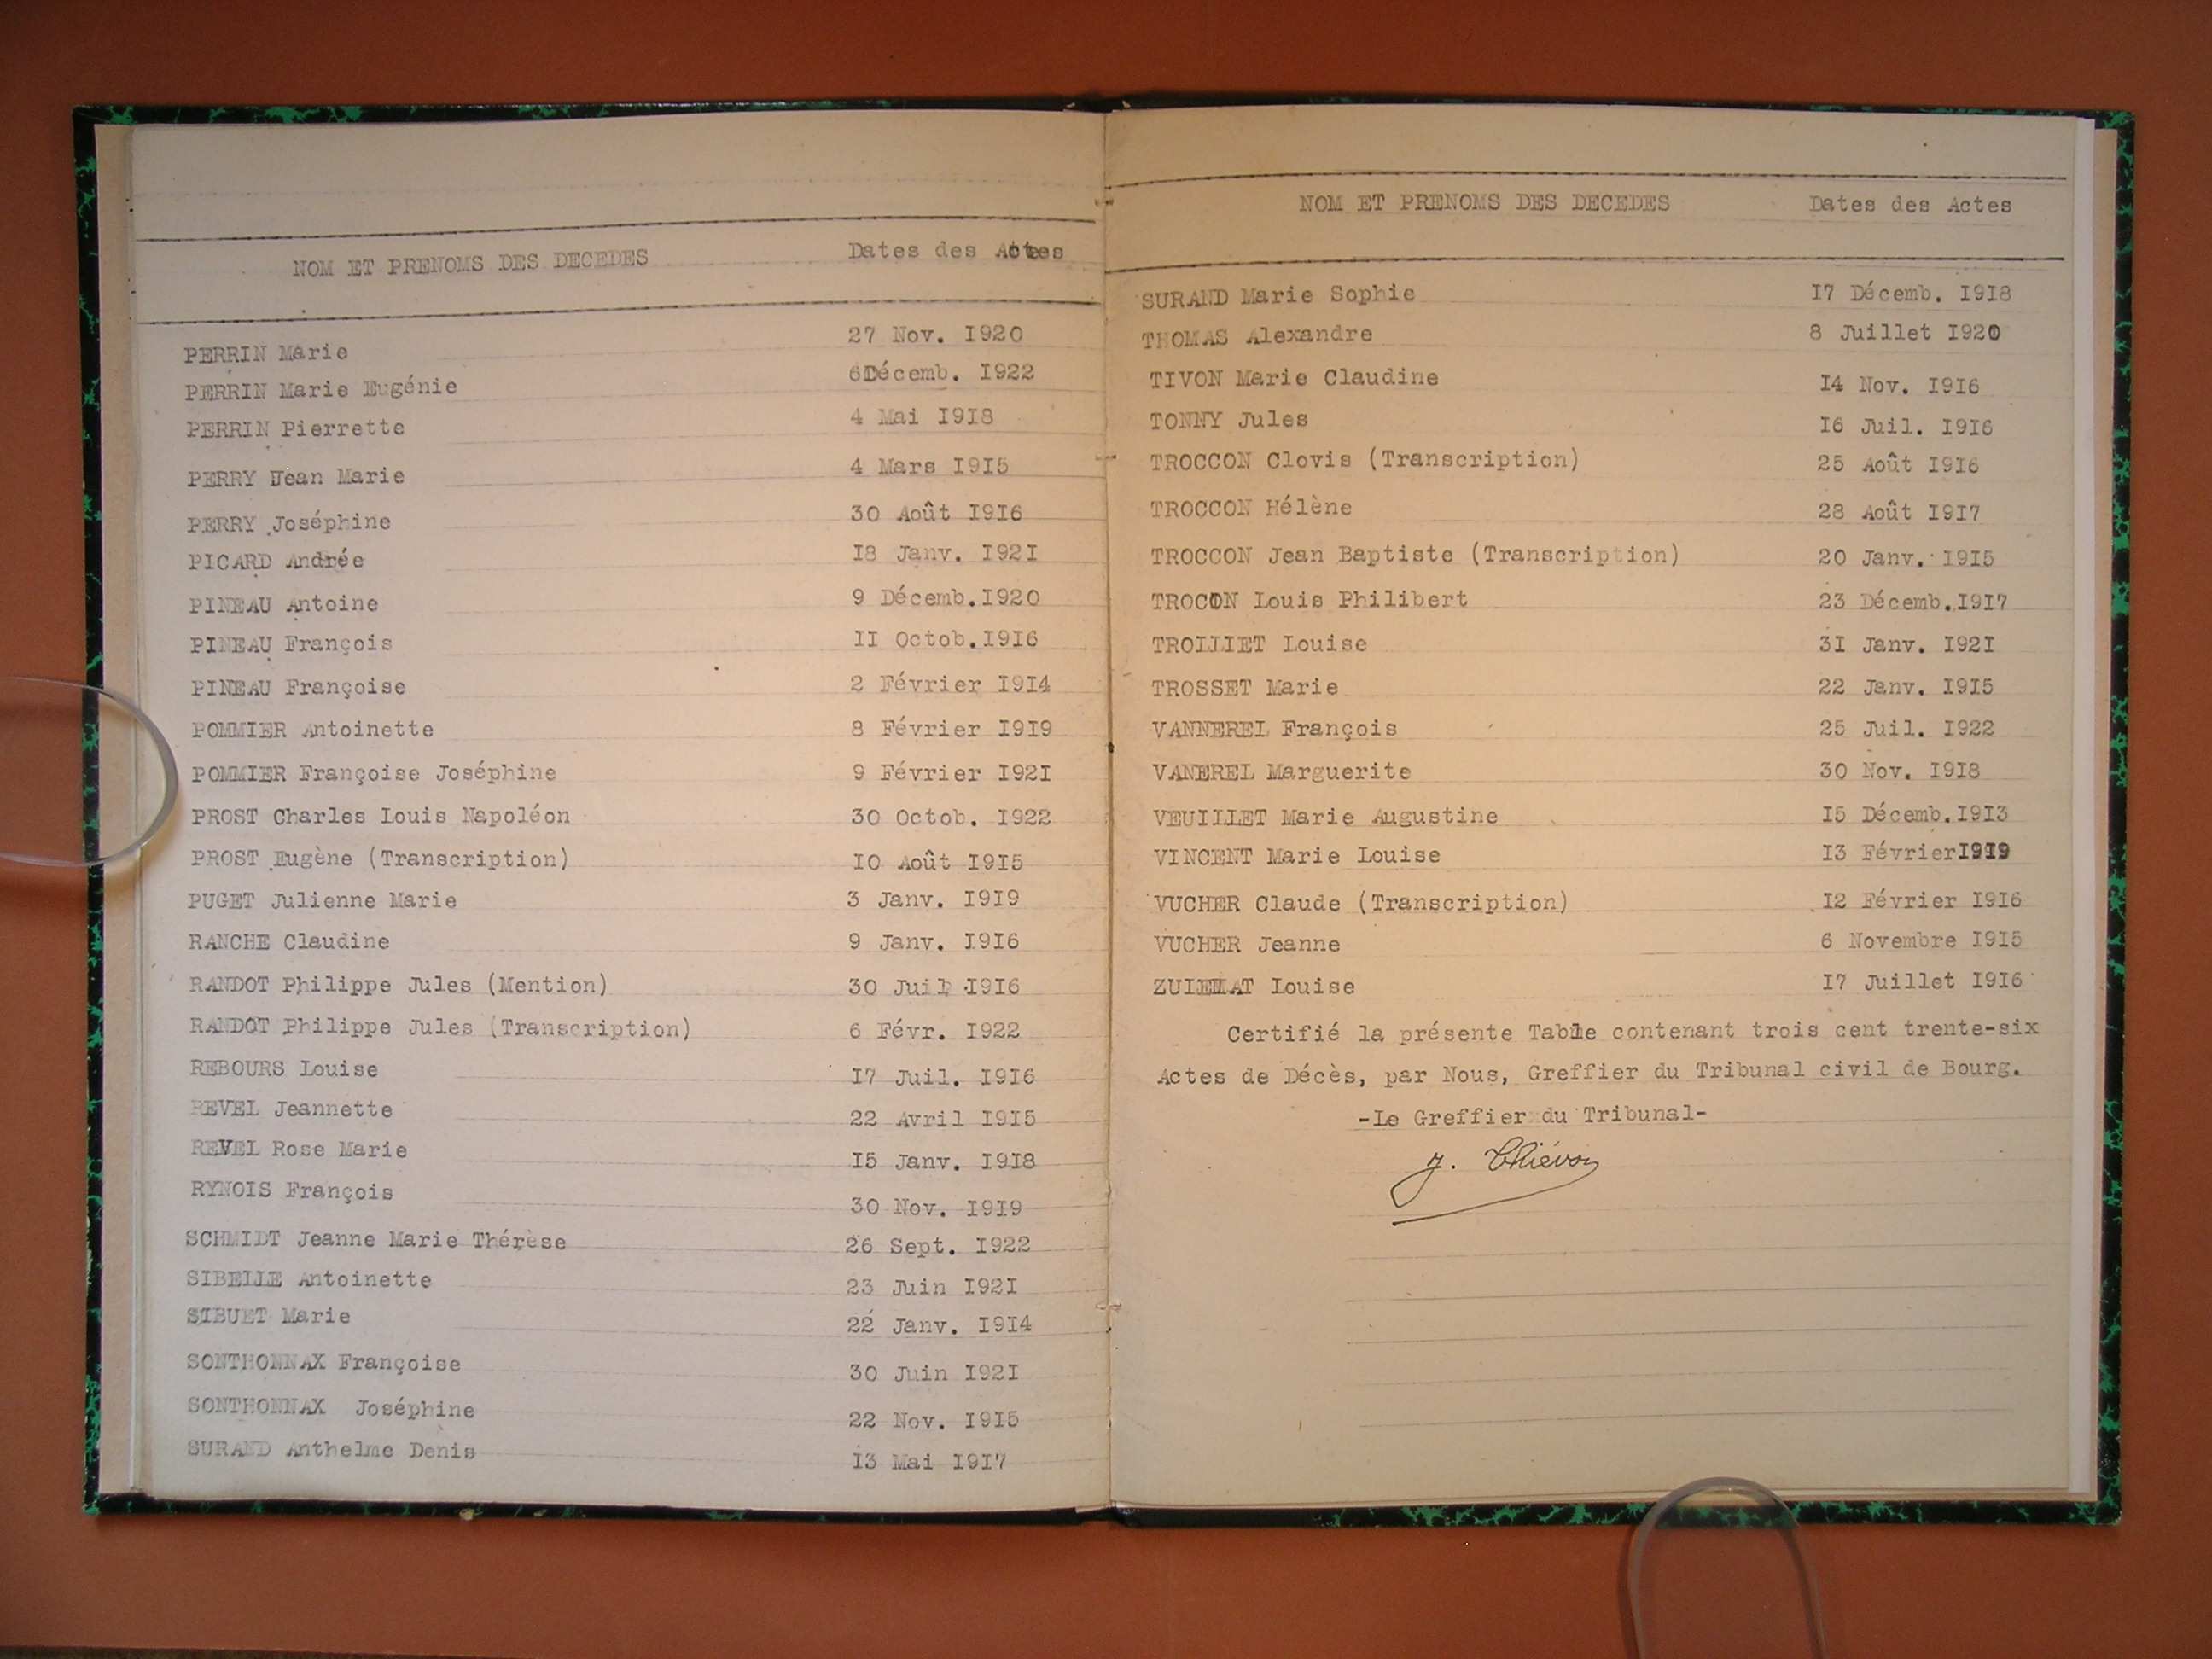 NOM ET PRENOMS DES DECEDES Dates des Actes
PERRIN Marie 27 Nov. I920
PERRIN Marie Eugénie 6 Décemb. I922
PERRIN Pierrette 4 Mai I9I8
PERRY Jean Marie 4 Mars I9I5
PERRY Joséphine 30 Août I9I6
PICARD Andrée I8 Janv. I92I
PINEAU Antoine 9 Décemb.I920
PINEAU François II Octob.I9I6
PINEAU Françoise 2 Février I9I4
POMMIER Antoinette 8 Février I9I9
POMMIER Françoise Joséphine 9 Février I92I
PROST Charles Louis Napoléon 30 Octob. I922
PROST Eugène (Transcription) IO Août I9I5
PUGET Julienne Marie 3 Janv. I9I9
RANCHE Claudine 9 Janv. I9I6
RANDOT Philippe Jules (Mention) 30 Juil. I9I6
RANDOT Philippe Jules (Transcription) 6 Févr. I922
REBOURS Louise I7 Juil. I9I6
REVEL Jeannette 22 Avril I9I5
REVEL Rose Marie I5 Janv. I9I8
RYNOIS François 30 Nov. I9I9
SCHMIDT Jeanne Marie Thérèse 26 Sept. I922
SIBELLE Antoinette 23 Juin I92I
SIBUET Marie 22 Janv. I9I4
SONTHONNAX Françoise 30 Juin I92I
SONTHONNAX Joséphine 22 Nov. I9I5
SURAND Anthelme Denis I3 Mai I9I7
NOM ET PRENOMS DES DECEDES Dates des Actes
SURAND Marie Sophie I7 Décemb. I9I8
THOMAS Alexandre 8 Juillet I920
TIVON Marie Claudine I4 Nov. I9I6
TONNY Jules I6 Juil. I9I6
TROCCON Clovis (Transcription) 25 Août I9I6
TROCCON Hélène 28 Août I9I7
TROCCON Jean Baptiste (Transcription) 20 Janv. I9I5
TROCON Louis Philibert 23 Décemb.I9I7
TROLLIET Louise 3I Janv. I92I
TROSSET Marie 22 Janv. I9I5
VANNEREL François 25 Juil. I922
VANEREL Marguerite 30 Nov. I9I8
VEUILLET Marie Augustine I5 Décemb.I9I3
VINCENT Marie Louise I3 FévrierI9I9
VUCHER Claude (Transcription) I2 Février I9I6
VUCHER Jeanne 6 Novembre I9I5
Louise I7 Juillet I9I6
Certifié la présente Table contenant trois cent trente-six
Actes de Décès, par Nous, Greffier du Tribunal civil de Bourg.
-Le Greffier du Tribunal-